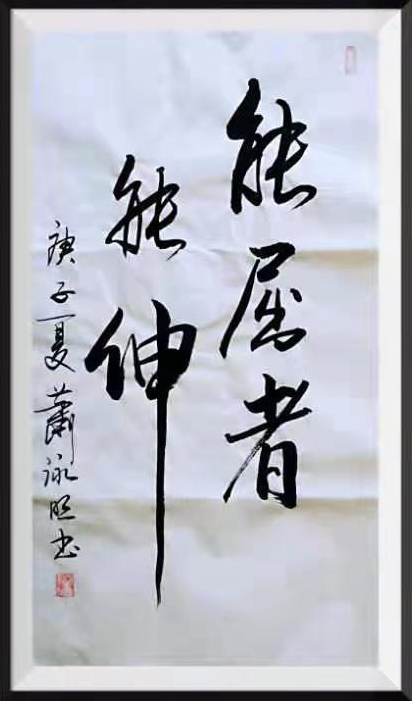 能屈者
能伸
庚子夏蕭詠照书